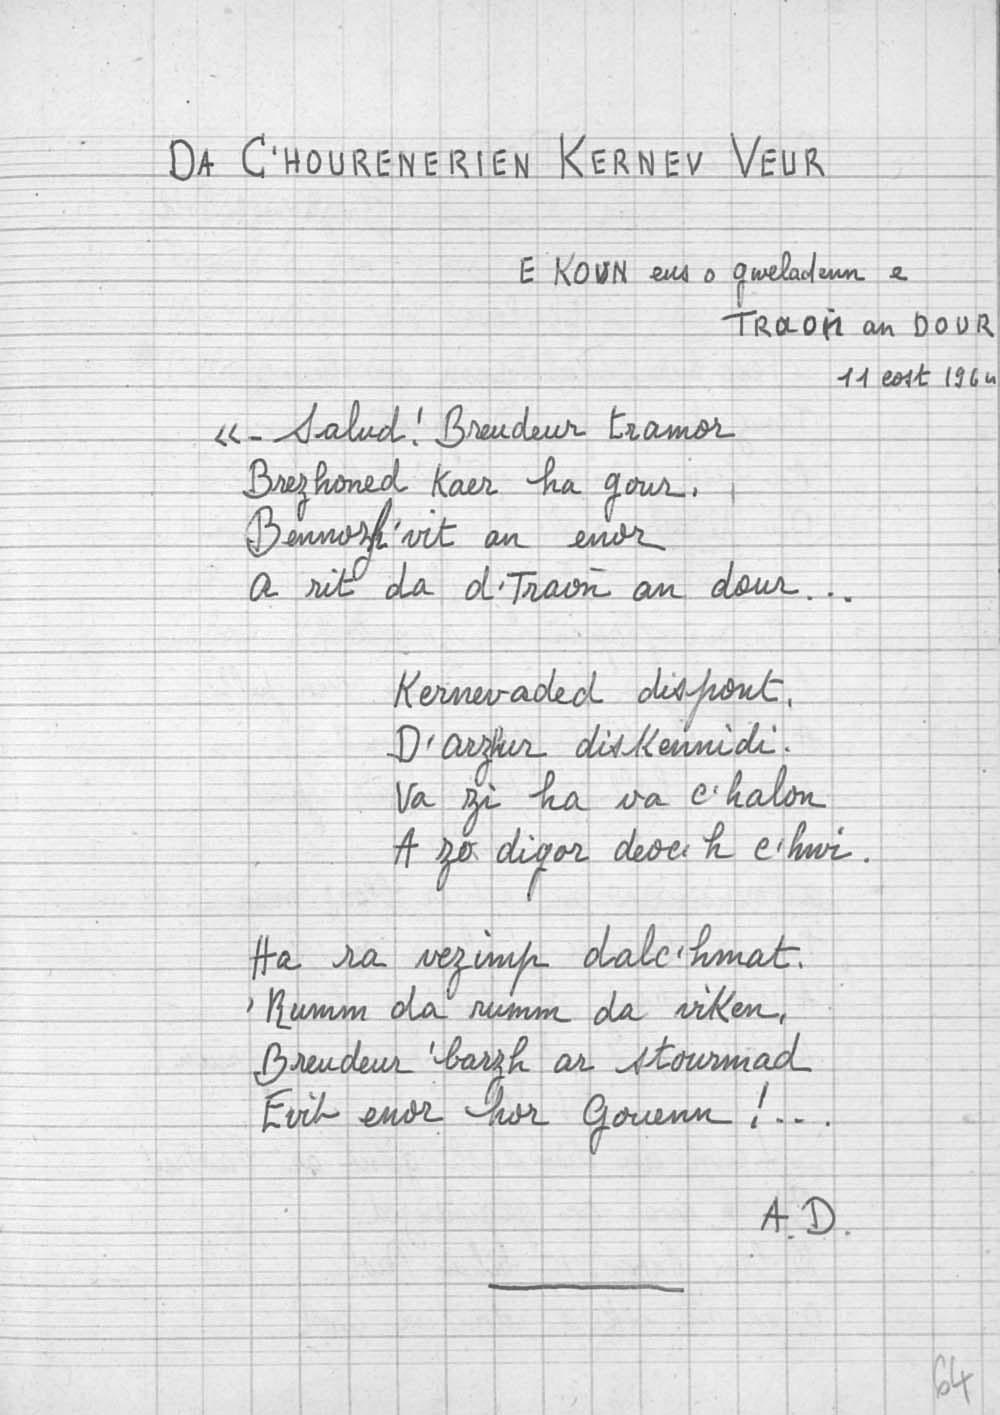 DA C'HOURENERIEN KERNEV VEUR
E KOUN eus o gweladenn e
TRAOÑ an DOUR
11 eost 1964
«- Salud! Breudeur tramor
Brezhoned Kaer ha gour.
Bennozh 'vit an enor
A rit da d'Traoñ an dour...
Kernevaded dispont.
D'arzhur diskennidi.
Va zi ha va c'halon
A zo digor deoc'h c'hwi.
Ha ra vezimp dalc'hmat.
'Rumm da rumm da viken,
Breudeur 'barzh ar stourmad
Evit enor hor Gouenn !...
A.D.
64